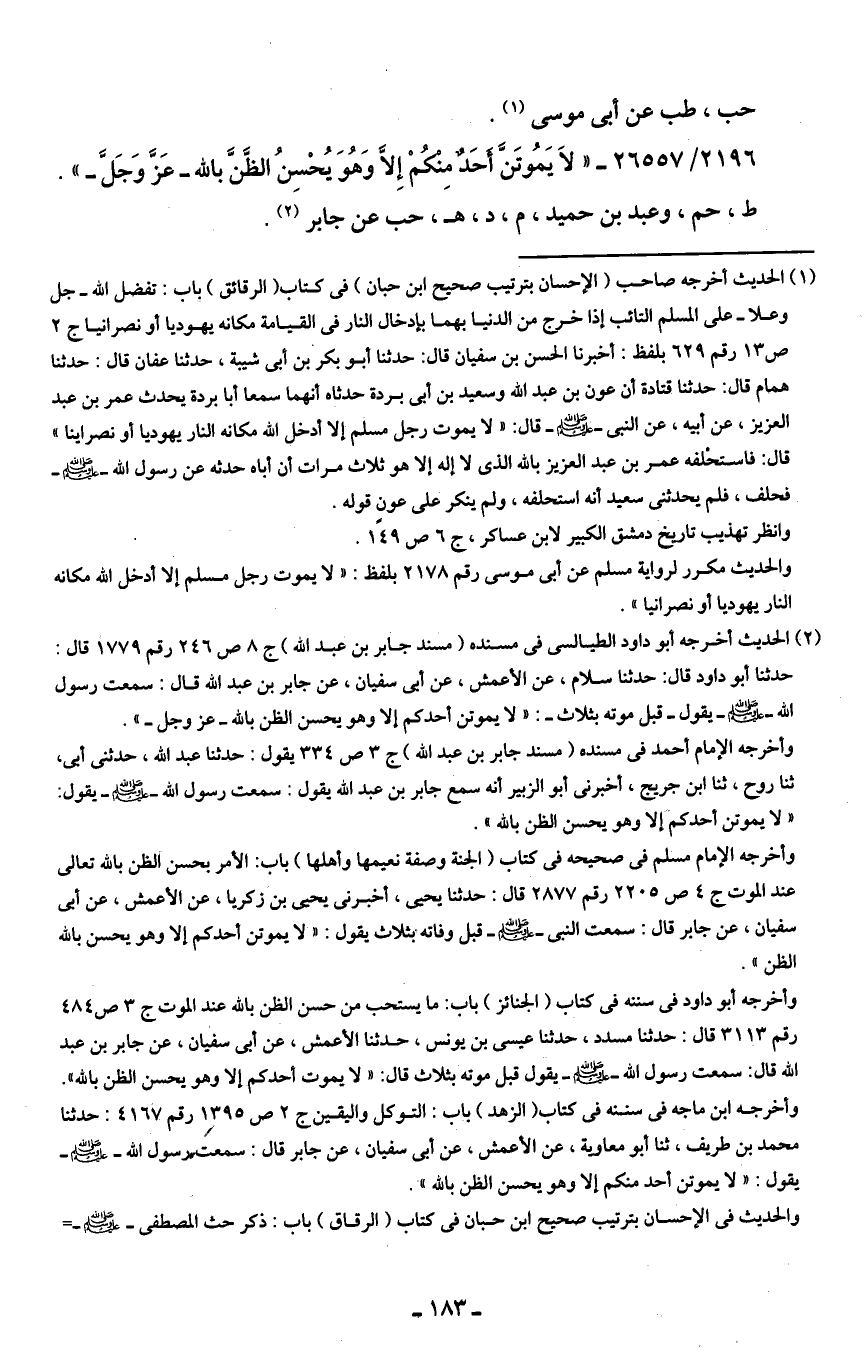 حب ، طب عن أبى موسى (١) .
٢٦٥٥٧/٢١٩٦ ـ « لاَ يَمُوتَنَّ أَحَدٌ مِنْكُمْ إِلاَّ وَهُوَ يُحْسِنُ الظَّنَّ بالله ـ عَزَّ وَجَلَّ ـ » .
ط ، حم ، وعبد بن حميد ، م ، د ، هـ ، حب عن جابر (٢) .
(١) الحديث أخرجه صاحب ( الإحسان بترتيب صحيح ابن حبان ) فى كتاب( الرقائق ) باب : تفضل الله ـ جل
وعلا ـ على المسلم التائب إذا خرج من الدنيا بهما بإدخال النار فى القيامة مكانه يهوديا أو نصرانيا ج ٢
ص١٣ رقم ٦٢٩ بلفظ : أخبرنا الحسن بن سفيان قال: حدثنا أبو بكر بن أبى شيبة ، حدثنا عفان قال : حدثنا
همام قال: حدثنا قتادة أن عون بن عبد الله وسعيد بن أبى بردة حدثاه أنهما سمعا أبا بردة يحدث عمر بن عبد
العزيز ، عن أبيه ، عن النبى ـ ﷺ ـ قال: « لا يموت رجل مسلم إلا أدخل الله مكانه النار يهوديا أو نصراينا »
قال: فاستحْلفه عمر بن عبد العزيز بالله الذى لا إله إلا هو ثلاث مرات أن أباه حدثه عن رسول الله ـ ﷺ ـ
فحلف ، فلم يحدثنى سعيد أنه استحلفه ، ولم ينكر على عونٍ قوله .
وانظر تهذيب تاريخ دمشق الكبير لابن عساكر ، ج ٦ ص ١٤٩ .
والحديث مكرر لرواية مسلم عن أبى موسى رقم ٢١٧٨ بلفظ : « لا يموت رجل مسلم إلا أدخل الله مكانه
النار يهوديا أو نصرانيا » .
(٢) الحديث أخرجه أبو داود الطيالسى فى مسنده ( مسند جابر بن عبد الله ) ج ٨ ص ٢٤٦ رقم ١٧٧٩ قال :
حدثنا أبو داود قال: حدثنا سلام ، عن الأعمش ، عن أبى سفيان ، عن جابر بن عبد الله قال : سمعت رسول
الله ـ ﷺ ـ يقول ـ قبل موته بثلاث ـ : « لا يموتن أحدكم إلا وهو يحسن الظن بالله ـ عز وجل ـ » .
وأخرجه الإمام أحمد فى مسنده ( مسند جابر بن عبد الله ) ج ٣ ص ٣٣٤ يقول : حدثنا عبد الله ، حدثنى أبى،
ثنا روح ، ثنا ابن جريج ، أخبرنى أبو الزبير أنه سمع جابر بن عبد الله يقول : سمعت رسول الله ـ ﷺ ـ يقول:
« لا يموتن أحدكم إلا وهو يحسن الظن بالله » .
وأخرجه الإمام مسلم فى صحيحه فى كتاب ( الجنة وصفة نعيمها وأهلها ) باب: الأمر بحسن الظن بالله تعالى
عند الموت ج ٤ ص ٢٢٠٥ رقم ٢٨٧٧ قال : حدثنا يحيى ، أخبرنى يحيى بن زكريا ، عن الأعمش ، عن أبى
سفيان ، عن جابر قال : سمعت النبى ـ ﷺ ـ قبل وفاته بثلاث يقول : « لا يموتن أحدكم إلا وهو يحسن بالله
الظن » .
وأخرجه أبو داود فى سننه فى كتاب ( الجنائز ) باب: ما يستحب من حسن الظن بالله عند الموت ج ٣ ص٤٨٤
رقم ٣١١٣ قال : حدثنا مسدد ، حدثنا عيسى بن يونس ، حدثنا الأعمش ، عن أبى سفيان ، عن جابر بن عبد
الله قال: سمعت رسول الله ـ ﷺ ـ يقول قبل موته بثلاث قال: « لا يموت أحدكم إلا وهو يحسن الظن بالله».
وأخرجه ابن ماجه فى سننه فى كتاب( الزهد ) باب : التوكل واليقين ج ٢ ص ١٣٩٥ رقم ٤١٦٧ : حدثنا
محمد بن طريف ، ثنا أبو معاوية ، عن الأعمش ، عن أبى سفيان ، عن جابر قال : سمعت رسول الله ـ ﷺ ـ
يقول : « لا يموتن أحد منكم إلا وهو يحسن الظن بالله » .
والحديث فى الإحسان بترتيب صحيح ابن حبان فى كتاب ( الرقاق ) باب : ذكر حث المصطفى ـ ﷺ ـ=
ـ ١٨٣ ـ